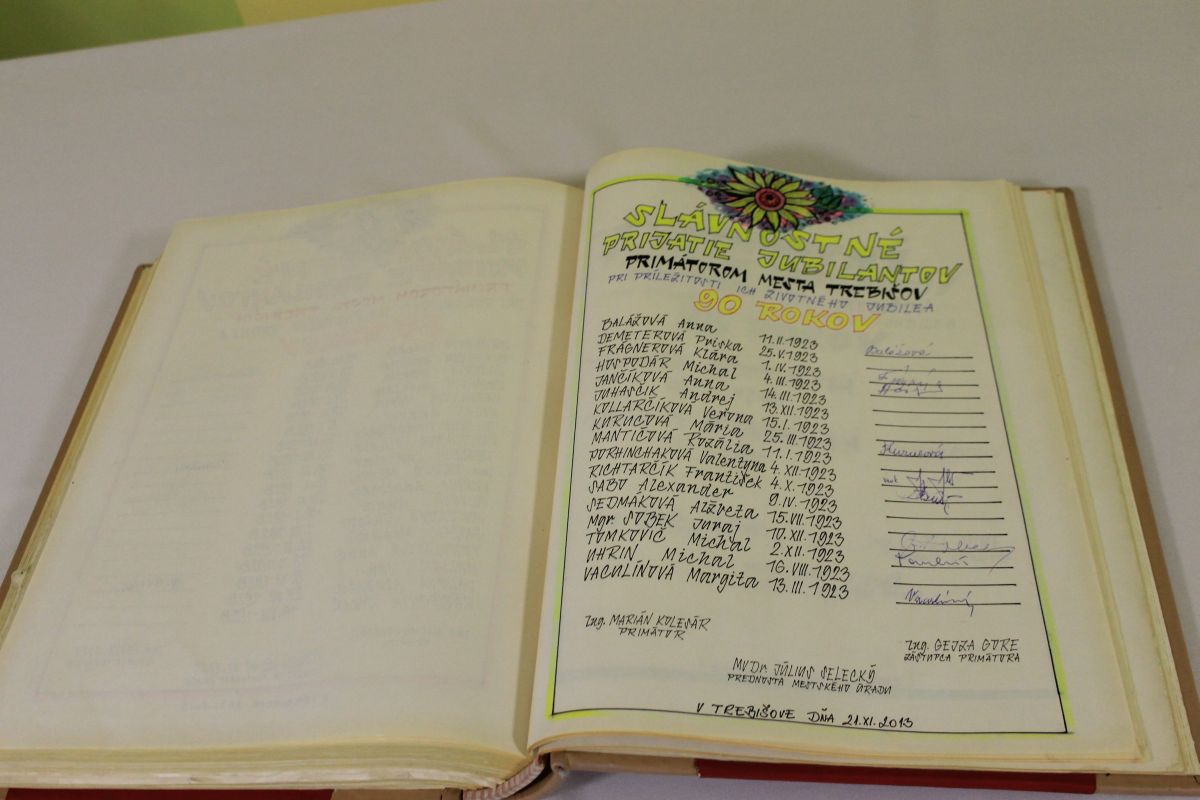 SLÁVNOSTNÉ
PRIJATIE JUBILANTOV
PRIMÁTOROM MESTA TREBIŠOV
PRI PRÍLEŽITOSTI ICH ŽIVOTNÉHO JUBILEA
90 ROKOV
BALÁŽOVÁ Anna 11.II.1923 Balážová
DEMETEROVÁ Priska 25.V.1923
FRAGNEROVÁ Klára 1.IV.1923
HOSPODÁR Michal 4.III.1923
JANČÍKOVÁ Anna 14.III.1923
JUHASČIK Andrej 13.XII.1923
KOLLARČÍKOVÁ Verona 15.I.1923
KURUCOVÁ Mária 25.III.1923 Kurucová
MANTIČOVÁ Rozália 11.I.1923
PORHINCHAKOVÁ Valentyna 4.XII.1923
RICHTARČÍK František 4.X.1923
SABO Alexander 9.IV.1923
SEDMAKOVÁ Alžbeta 15.VII.1923
Mgr SOBEK Juraj 10.XII.1923
TOMKOVIČ Michal 2.XII.1923
UHRIN Michal 16.VIII.1923
VACULÍNOVÁ Margita 13.III.1923
Ing. MARIÁN KOLESÁR
PRIMÁTOR
Ing. GEJZA GORE
ZÁSTUPCA PRIMÁTORA
MVDr. JÚLIUS SELECKÝ
PREDNOSTA MESTSKÉHO ÚRADU
V TREBIŠOVE DŇA 21.XI.2013